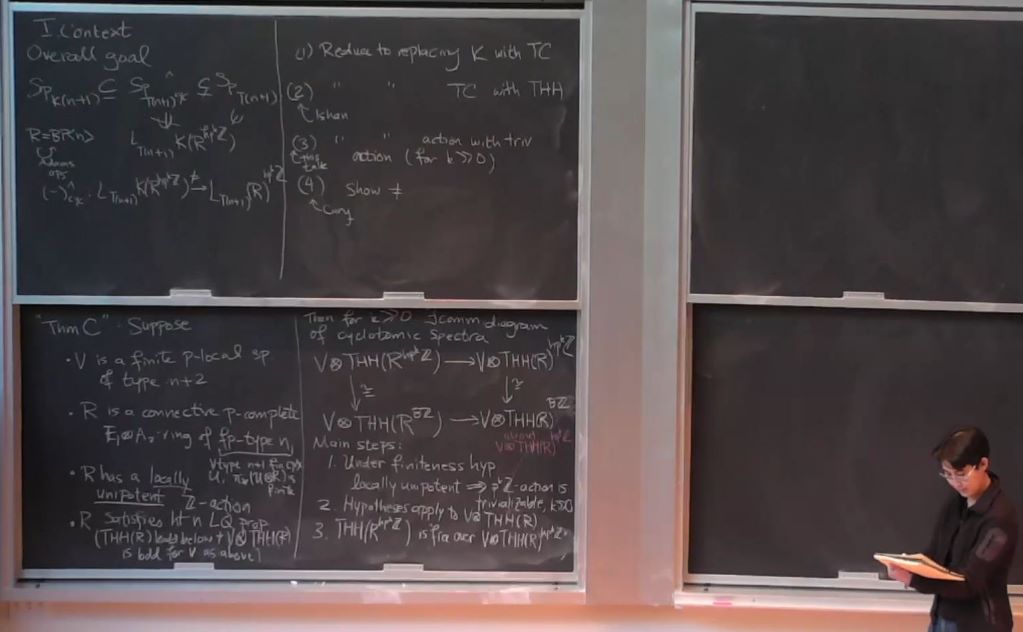 I. Context
Overall goal
Sp_{K(n+1)} ⊆ Sp_{T(n+1)}^{^cyc} ⊊ Sp_{T(n+1)}
L_{T(n+1)} K(R^{hp^kZ})
R=BP<n>
Adams
ops
(-)^_{cyc}: L_{T(n+1)} K(R^{hp^kZ}) ≠→ L_{T(n+1)} (R)^{hp^kZ}
(1) Reduce to replacing K with TC
(2) " " TC with THH
Ishan
(3) " " action with triv
this talk
action (for k≫0)
(4) Show ≠
"Thm C". Suppose
• V is a finite p-local sp
of type n+2
• R is a connective p-complete
E_1⊗A_2-ring of fp-type n,
∀ type n+1 fin cpx
U, π_*(U⊗R) is
finite
• R has a locally
unipotent Z-action
• R satisfies ht n LQ prop
(THH(R) bdd below + V⊗THH(R)
is bdd for V as above)
Then for k≫0 ∃ comm diagram
of cyclotomic spectra
V⊗THH(R^{hp^kZ}) → V⊗THH(R)^{hp^kZ}
↓≅ ↓≅
V⊗THH(R^{BZ}) → V⊗THH(R)^{BZ}
V⊗THH(R)^{hp^kZ}
Main steps:
1. Under finiteness hyp,
locally unipotent ⟹ p^kZ-action is
trivializable, k≫0
2. Hypotheses apply to V⊗THH(R)
3. THH(R^{hp^kZ}) is over V⊗THH(R)^{hp^kZ}